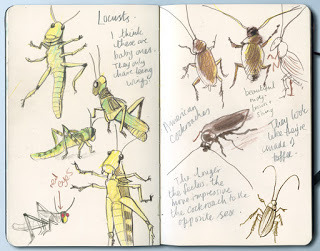 Locusts.
I think
these are
baby ones.
They only
have being
wings!
eyes
American
Cockroaches
beautiful
They look
like they're
made of
toffee.
The longer
the feelers, the
more impressive
the cockroach to the
opposite sex.